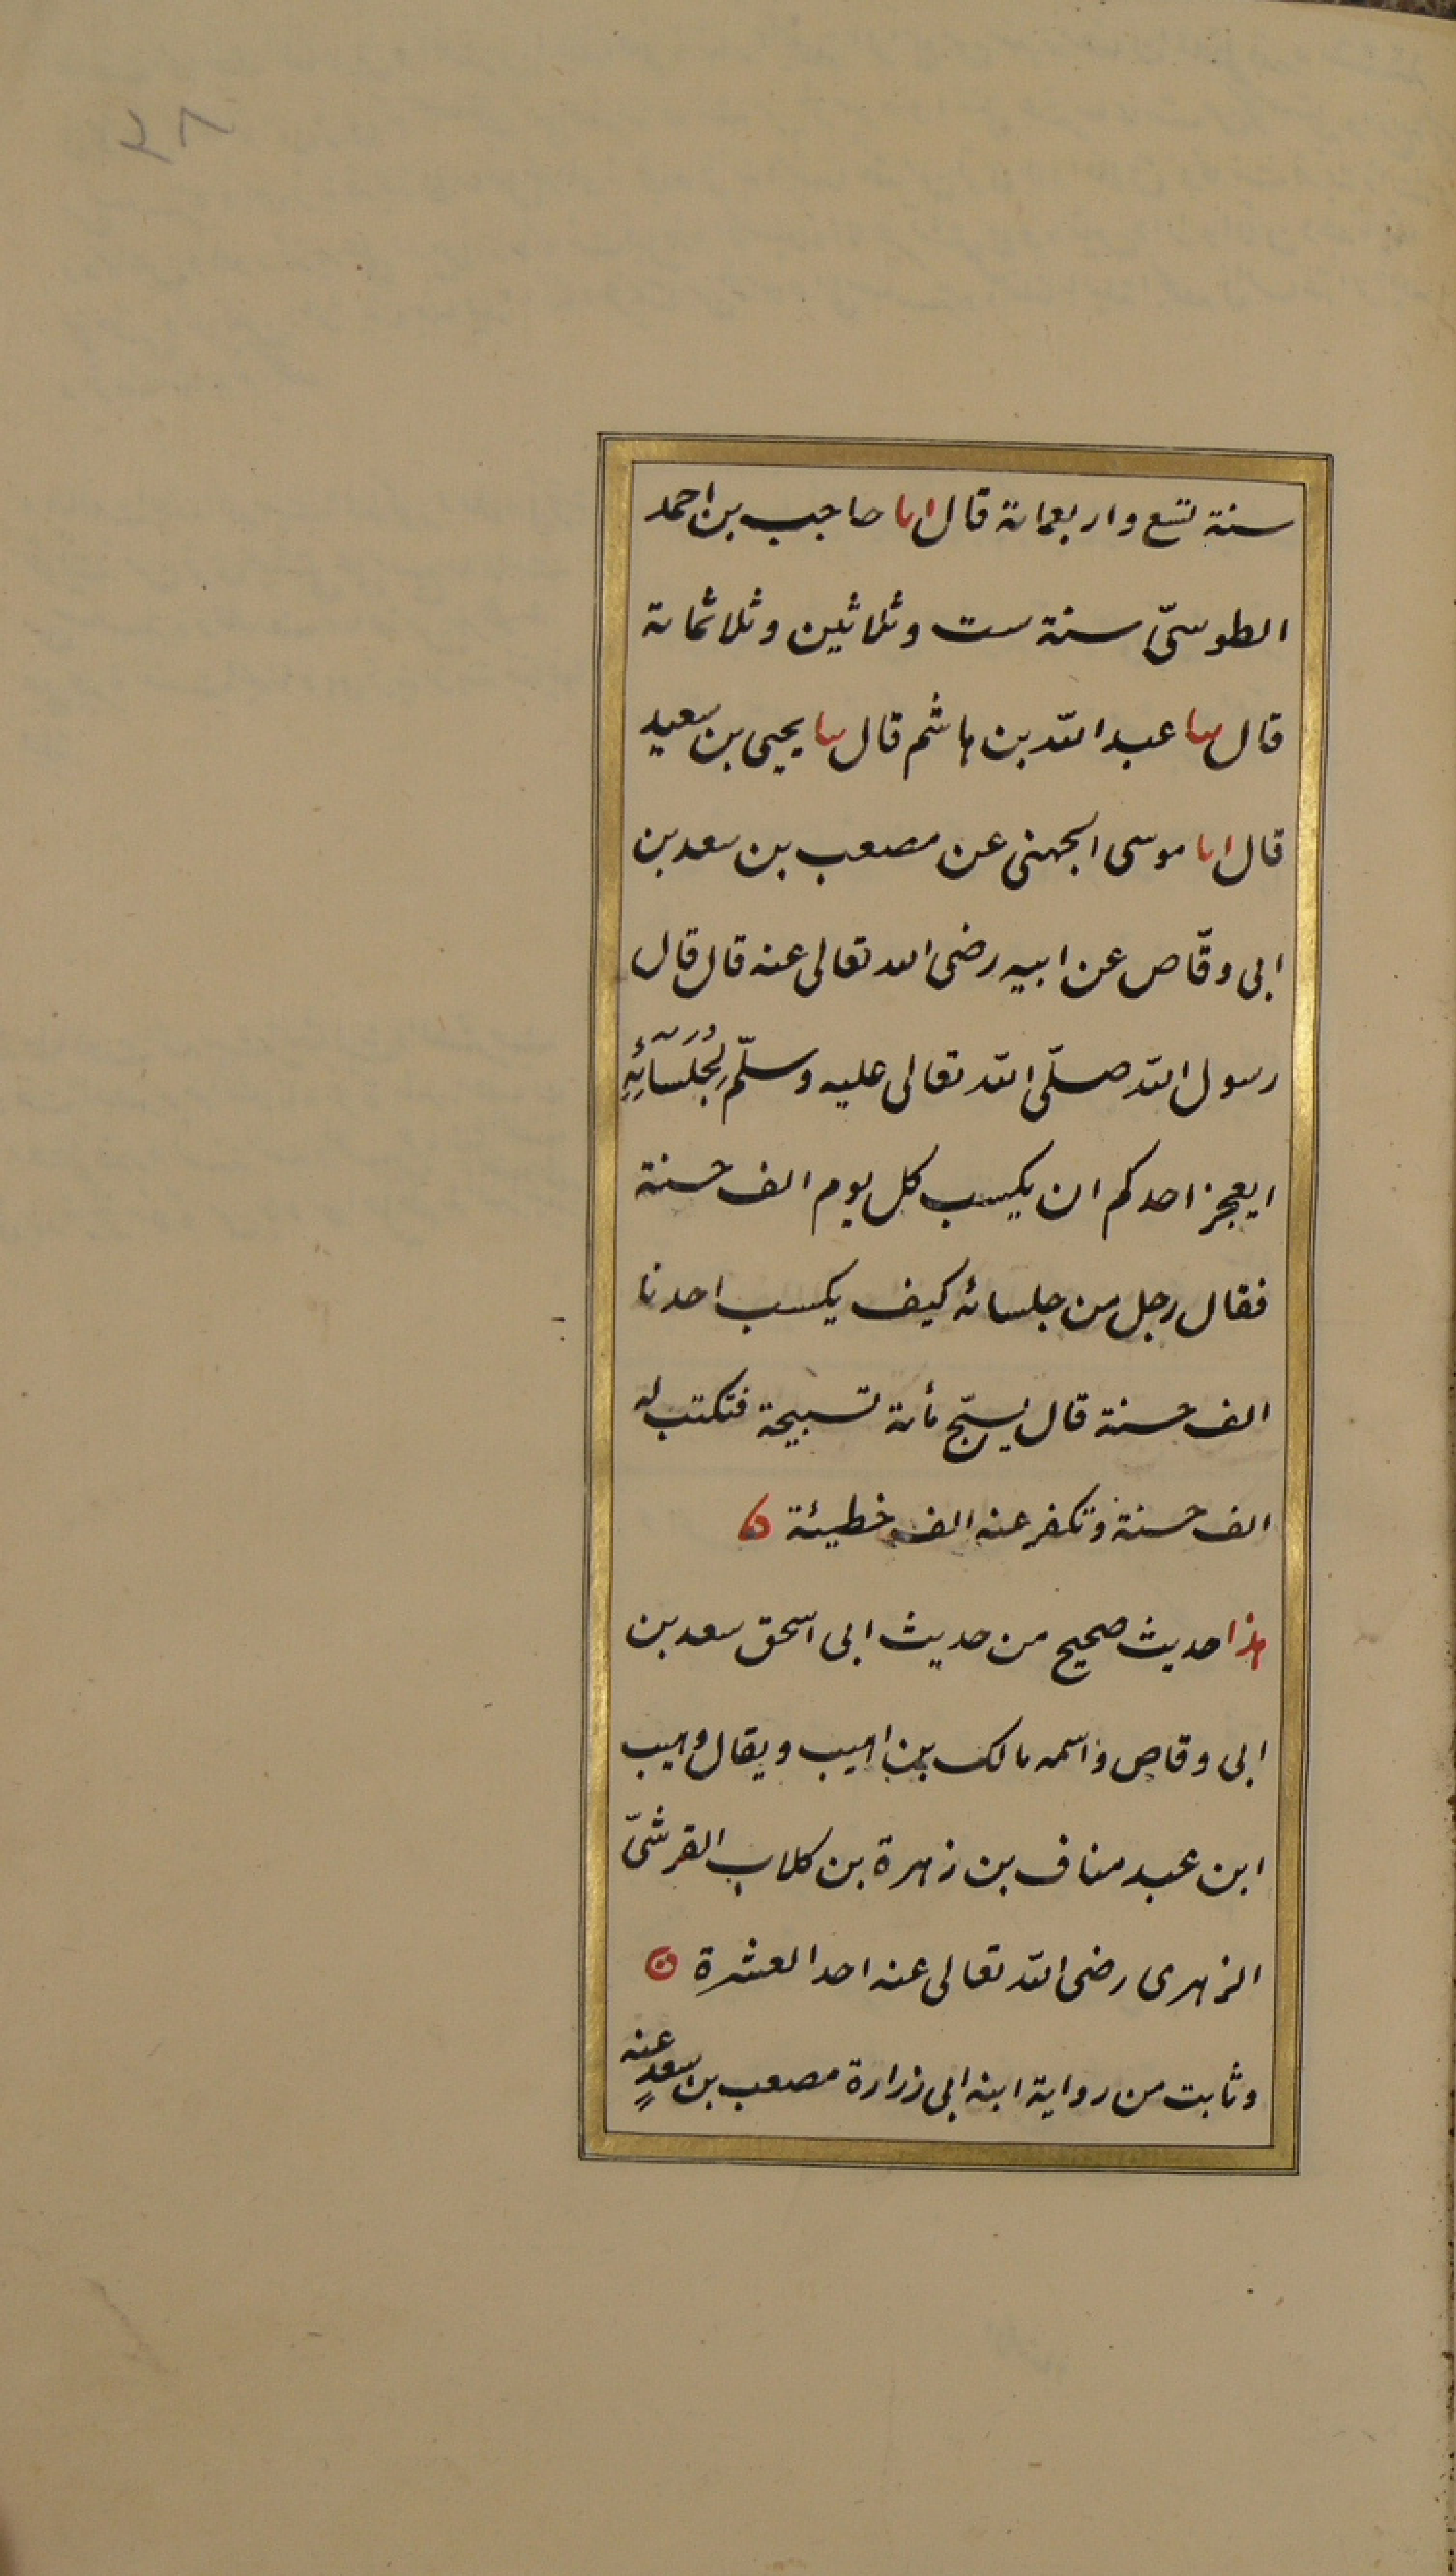 ٨٤
سنة تسع واربعمائة قال انا حاجب بن احمد
الطوسىّ سنة ست وثلاثين وثلاثمائة
قال ىنا عبد الله بن هاشم قال ىنا يحيى بن سعيد
قال انا موسى الجهنى عن مصعب بن سعد بن
ابى وقّاص عن ابيه رضى الله تعالى عنه قال قال
رسول الله صلّى الله تعالى عليه وسلّم لِجُلَسَآئِهِ
ايعجز احدكم ان يكسب كل يوم الف حسنة
فقال رجل من جلسائه كيف يكسب احدنا
الف حسنة قال يسبّح مأئة تسبيحة فتكتب له
الف حسنة وتكفر عنه الف خطيئة
هذا حديث صحيح من حديث ابى اسحق سعد بن
ابى وقاص واسمه مالك بن اهيب ويقال وهيب
ابن عبد مناف بن زهرة بن كلاب القرشىّ
الزهرى رضى الله تعالى عنه احد العشرة
وثابت من رواية ابنه ابى زرارة مصعب بن سعدٍ عنه